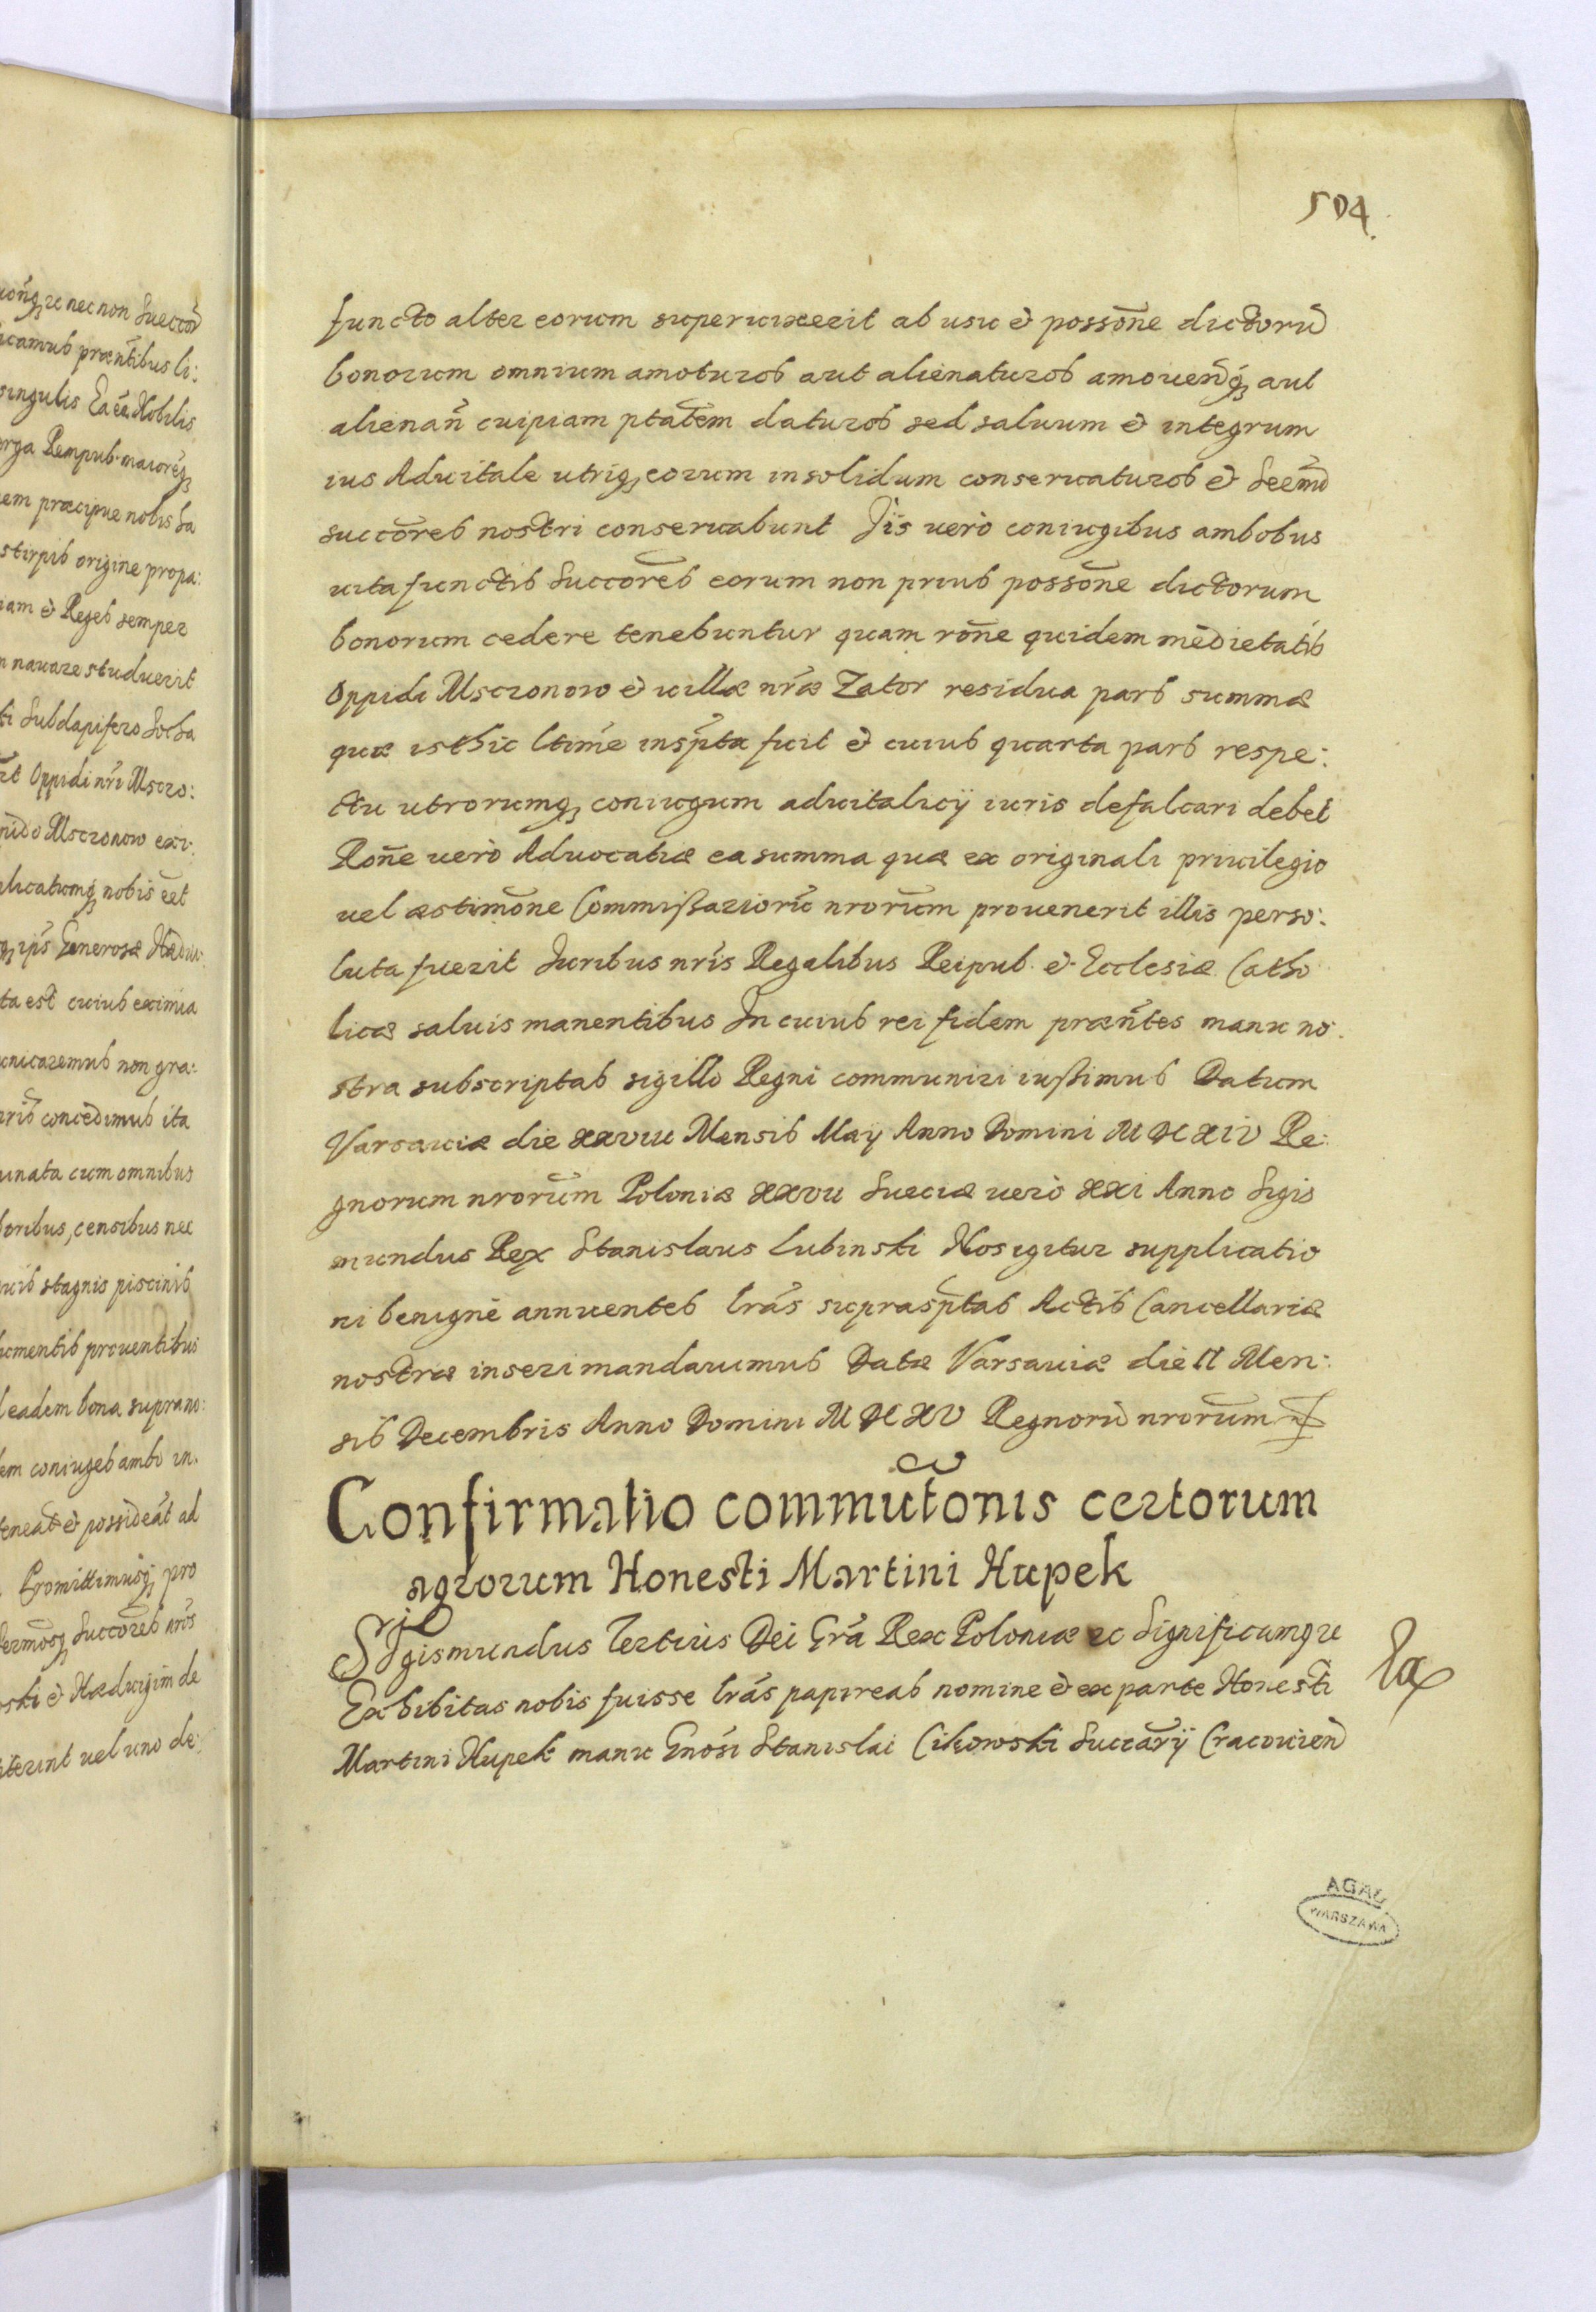 504.
functo alter eorum superuixerit ab usu et possõne dictorũ
bonorum omnium amoturos aut alienaturos amouendiq́ aut
alienañ cuipiam ptãtem daturos sed saluum et integrum
ius Aduitale utriq; eorum in solidum conseruaturos et Seermi
succõres nostri conseruabunt Iis uerò coniugibus ambobus
uita functis Succõres eorum non prius possõne dictorum
bonorum cedere tenebuntur quam rõne quidem medietatis
Oppidi Mscronow et uillæ nræ Zator residua pars summæ
quæ isthic ltime inspta fuit et cuius quarta pars respe:
ctu utrorumq; coniugum aduitalicij iuris defalcari debet
Rõne uerò Aduocatiæ ea summa quæ ex originali priuilegio
uel æstimõne Commißariorũ nrorum prouenerit illis perso:
luta fuerit Iuribus nris Regalibus Reipub. et Ecclesiæ Catho
licæ saluis manentibus In cuius rei fidem præntes manu no:
stra subscriptas sigillo Regni communiri iußimus Datum
Varsauiæ die xxviii Mensis Maij Anno Domini M DC XIV Re:
gnorum nrorum Poloniæ xxvii Sueciæ uerò xxi Anno Sigis
mundus Rex Stanislaus Lubinski Nos igitur supplicatio
ni benignè annuentes lrás suprasptas Actis Cancellariæ
nostræ inseri mandauimus Datæ Varsauiæ die II Men:
sis Decembris Anno Domini M DC XV Regnorũ nrorum
Confirmatio commutõnis certorum
agrorum Honesti Martini Hupek
Sigismundus Tertius Dei Grã Rex Poloniæ ec Significamq ec
Exhibitas nobis fuisse lrás papireas nomine et ex parte Honesti
Martini Hupek manu Gnosi Stanislai Cikowski Succarij Cracouien
AGAD
WARSZAWA